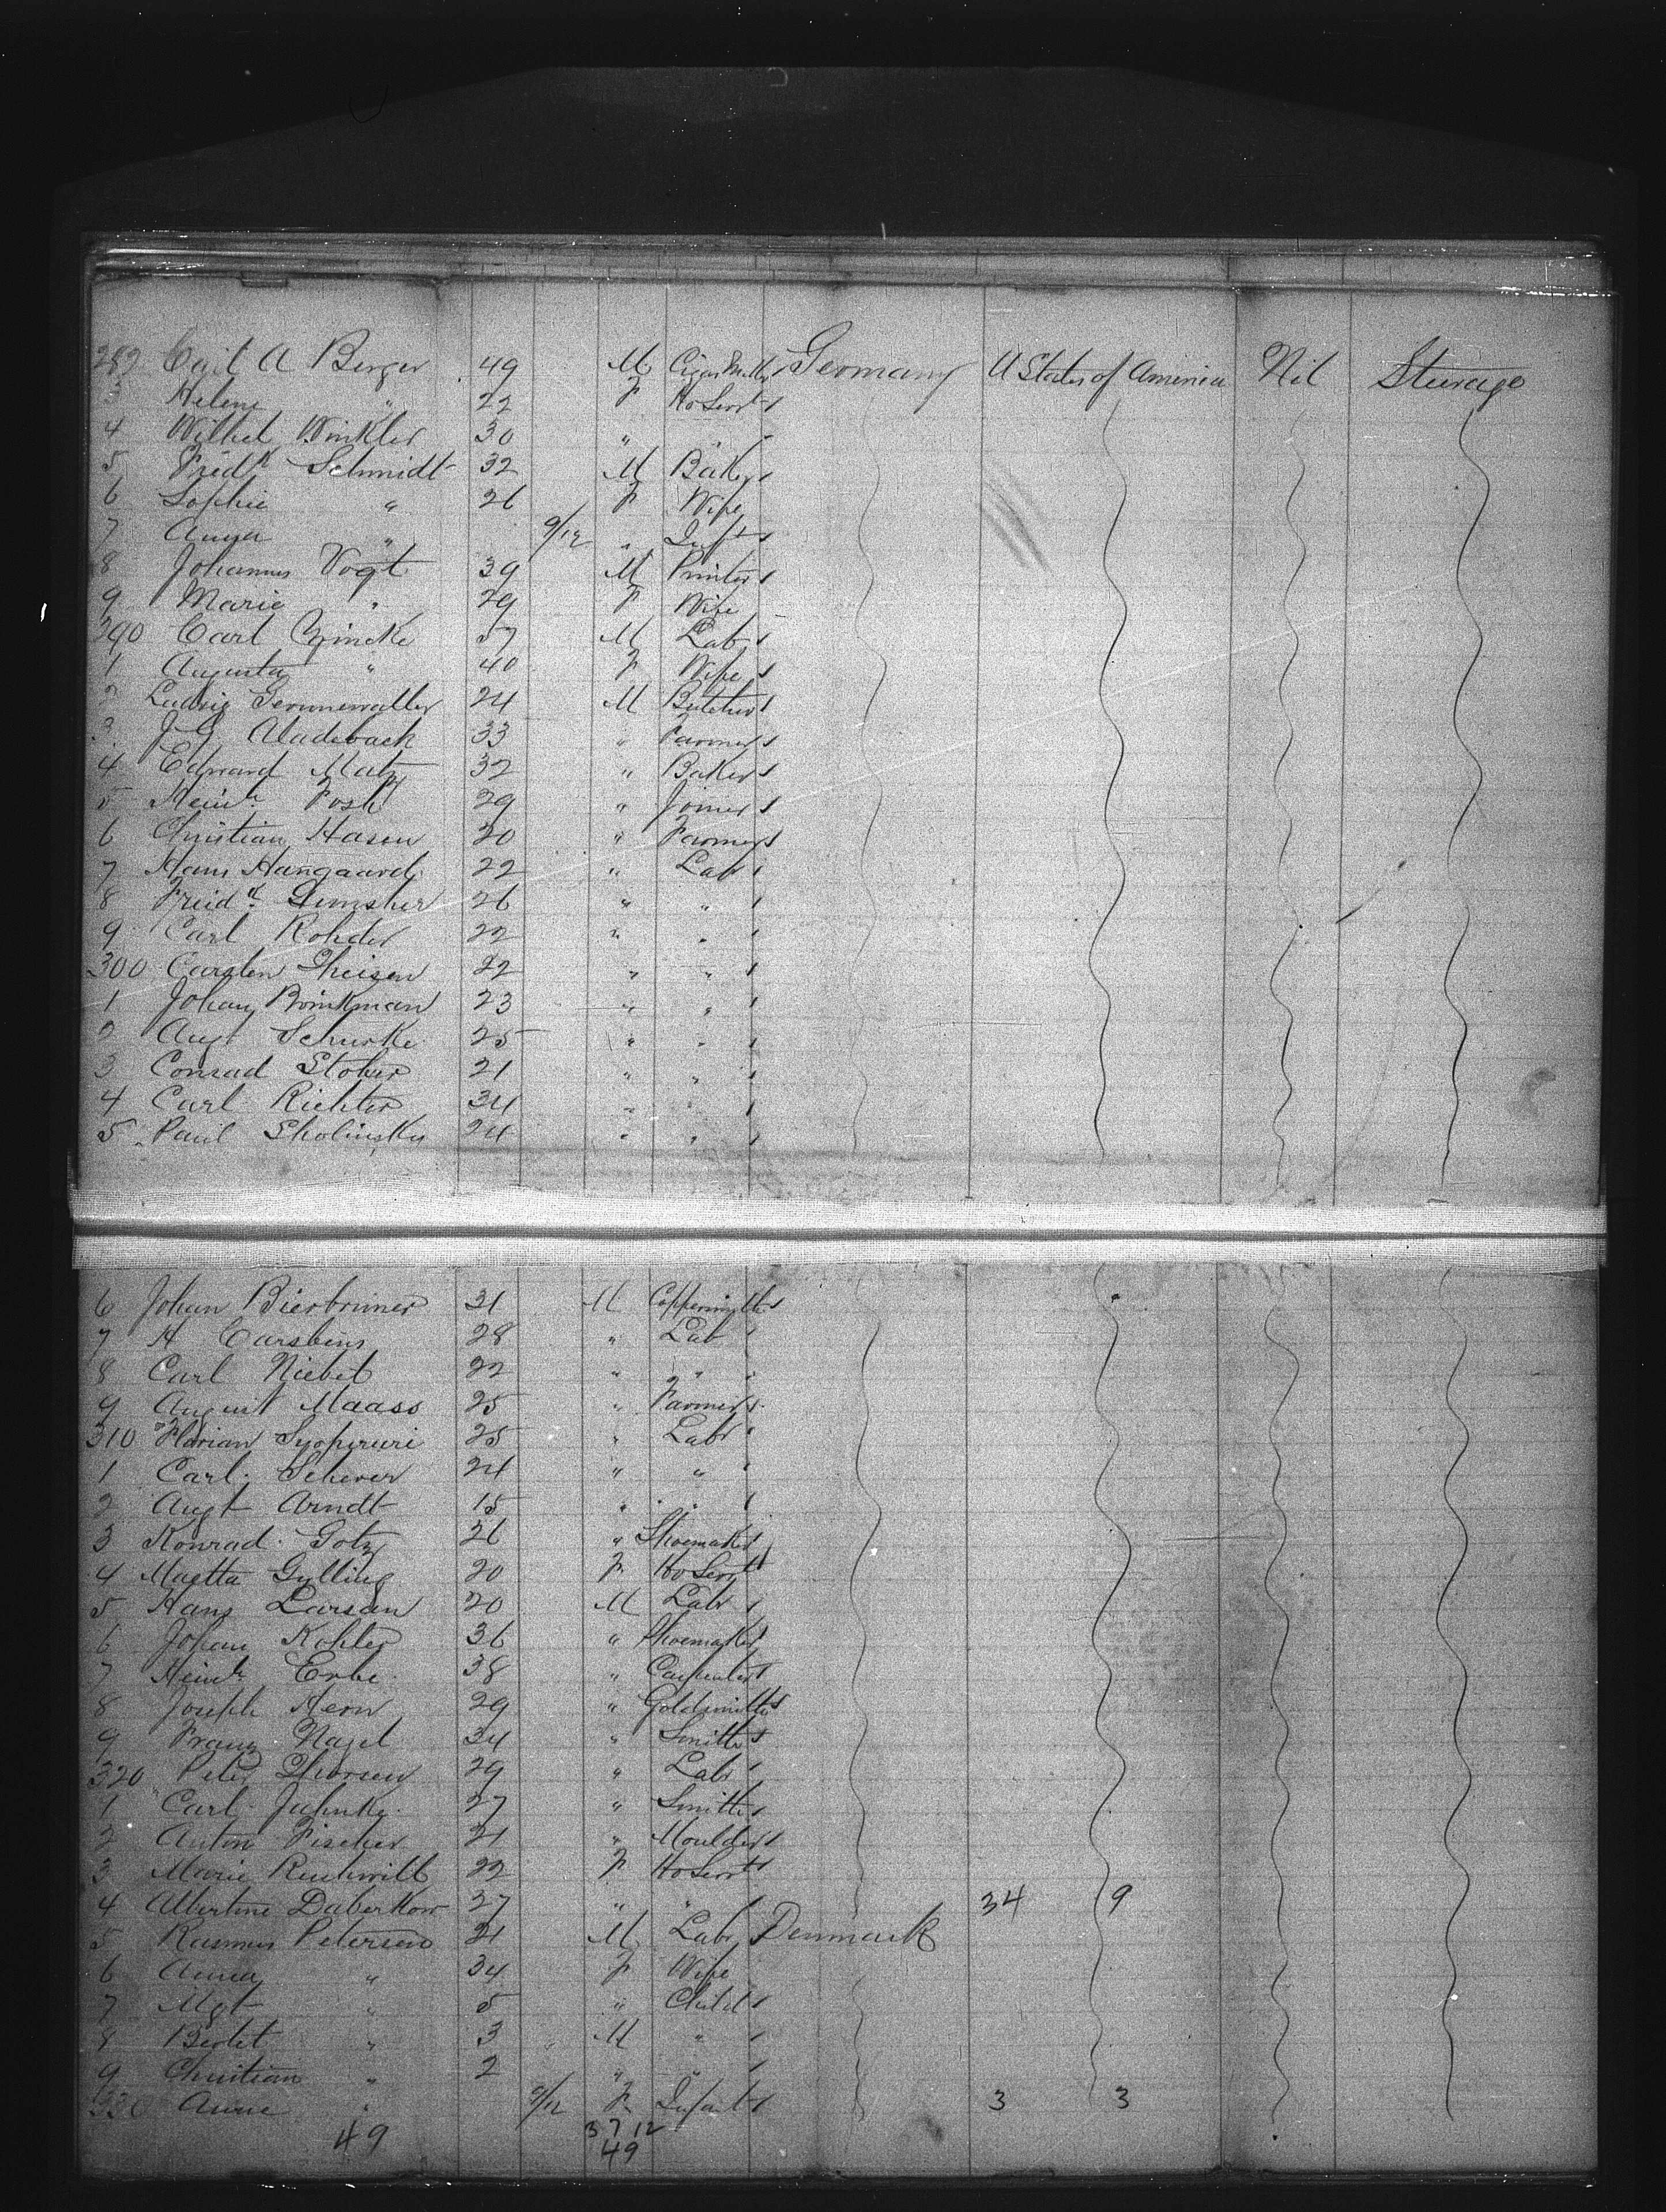 282 Cajt A Berger 49 M Cigar Maker Germany U States of America Nil Steerage
3 Helene " 22 F Ho Servt
4 Wilhel Winkler 30 " "
5 Fredk Schmidt 32 M Baker
6 Sophie " 26 F Wife
7 Anna " 9/12 " Inft
8 Johannes Vogt 39 M Printer
9 Marie " 29 F Wife
290 Carl 57 M Lab
1 Augusta " 40 F Wife
2 Ludwig 24 M Butcher
3 J G Aladeback 33 " Farmer
4 Edward Matz 32 " Baker
5 Heinh Posh 29 " Joiner
6 Christian Hasen 20 " Farmer
7 Hans Hangaard 22 " Lab
8 Freidk 26 " "
9 Carl Rohder 22 " "
300 Carsten Theisen 22 " "
1 Johan Brinkman 23 " "
2 Augt Schurke 25 " "
3 Conrad Stober 21 " "
4 Carl Richter 34 " "
5 Paul Skolinsky 24 " "
6 Johan Bierbrimer 31 M Coppersmith
7 H Carsbens 28 " Lab
8 Carl Niebel 22 " "
9 August Maass 25 " Farmer
310 Florian 25 " Labr
1 Carl Scherer 24 " "
2 Augt Arndt 15 " "
3 Konrad Gotz 26 " Shoemaker
4 Maetta Gylling 20 F Ho Servt
5 Hans Larsen 20 M Labr
6 Johan Kohler 36 " Shoemaker
7 Heinh Erbe 38 " Carpenter
8 Joseph Kern 29 " Goldsmith
9 Franz Nagel 34 " Smith
320 Peter Thorsen 29 " Labr
1 Carl Jahnke 27 " Smith
2 Anton Fischer 21 " Moulder
3 Marie 22 F Ho Servt
4 Albertine Daberkow 27 " " 34 9
5 Rasmus Petersen 31 M Labr Denmark
6 Anna " 34 F Wife
7 Mgt " 5 " Child
8 " 3 M "
9 Christian " 2 " "
330 Anne " 9/12 F Infant 3 3
49 37 12
49